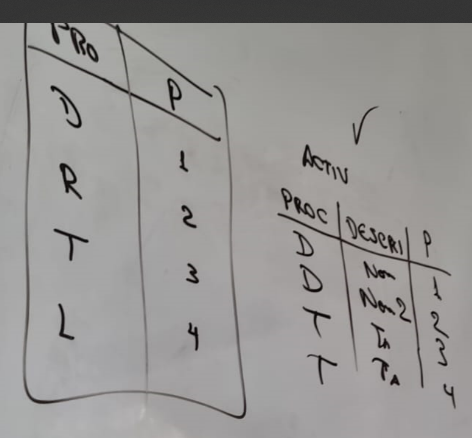 PRO P
D 1
R 2
T 3
L 4
ACTIV
PROC DESCRI P
D Non 1
D Non2 2
T TA 3
T TA 4